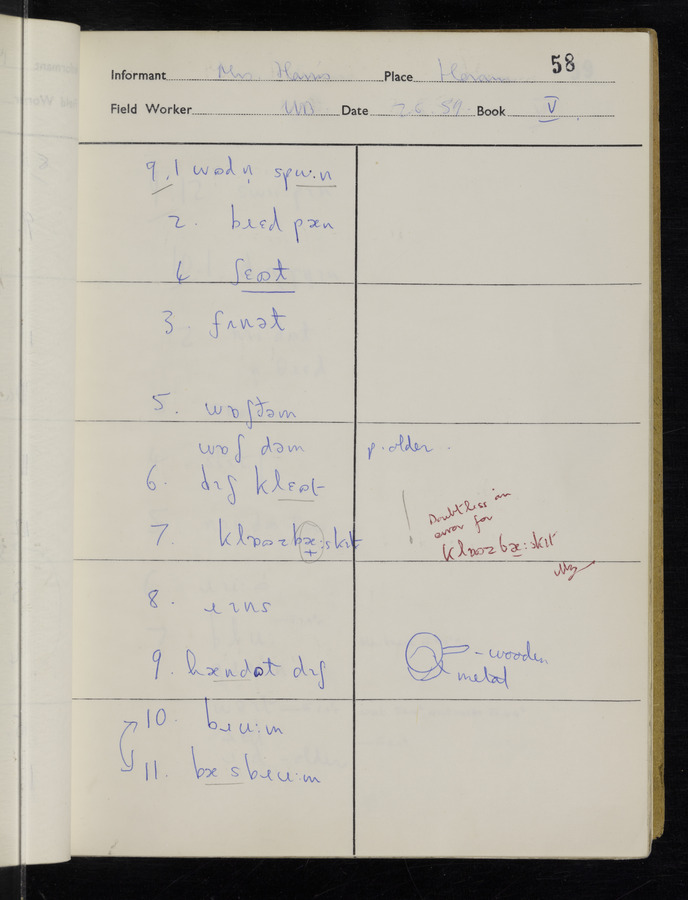 58
Informant Mrs Harris Place
Field Worker Date 7.6.59 Book V
9.1 wʊdn̩ spu:n
2. bɹɛd pæn
4 ʃɛot
3. fɪnət
5. wɒʃtəm
wɒʃ dəm p. older.
6. dɪʃ klɛət
7. klɒəzbæ:skɪt ! Doubtless an
error for
klɒəzbæ:skɪt
8. ɹɪns
9. hændət dɪʃ – wooden
metal
10. bɹu:m
11. bæsbɹu:m